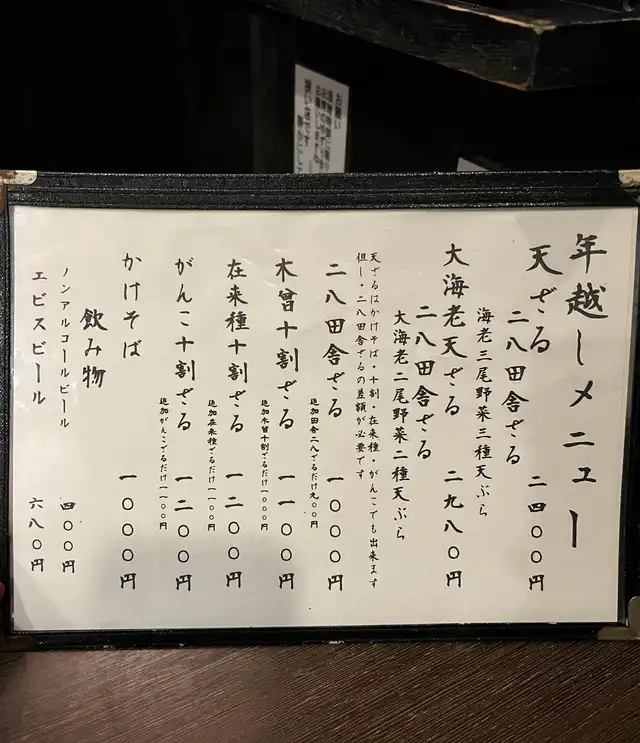 年越しメニュー
天ざる 二四〇〇円
二八田舎ざる
海老三尾野菜三種天ぷら
大海老天ざる 二九八〇円
二八田舎ざる
大海老二尾野菜二種天ぷら
天ざるはかけそば・十割・在来種・がんこでも出来ます
但し・二八田舎ざるの差額が必要です
二八田舎ざる 一〇〇〇円
追加田舎二八でるだけ九〇〇円
木曽十割ざる 一一〇〇円
追加木曽十割でるだけ一〇〇〇円
在来種十割ざる 一二〇〇円
追加在来種でるだけ一一〇〇円
がんこ十割ざる 一二〇〇円
追加がんこでるだけ一一〇〇円
かけそば 一〇〇〇円
飲み物
ノンアルコールビール 四〇〇円
エビスビール 六八〇円
お願い